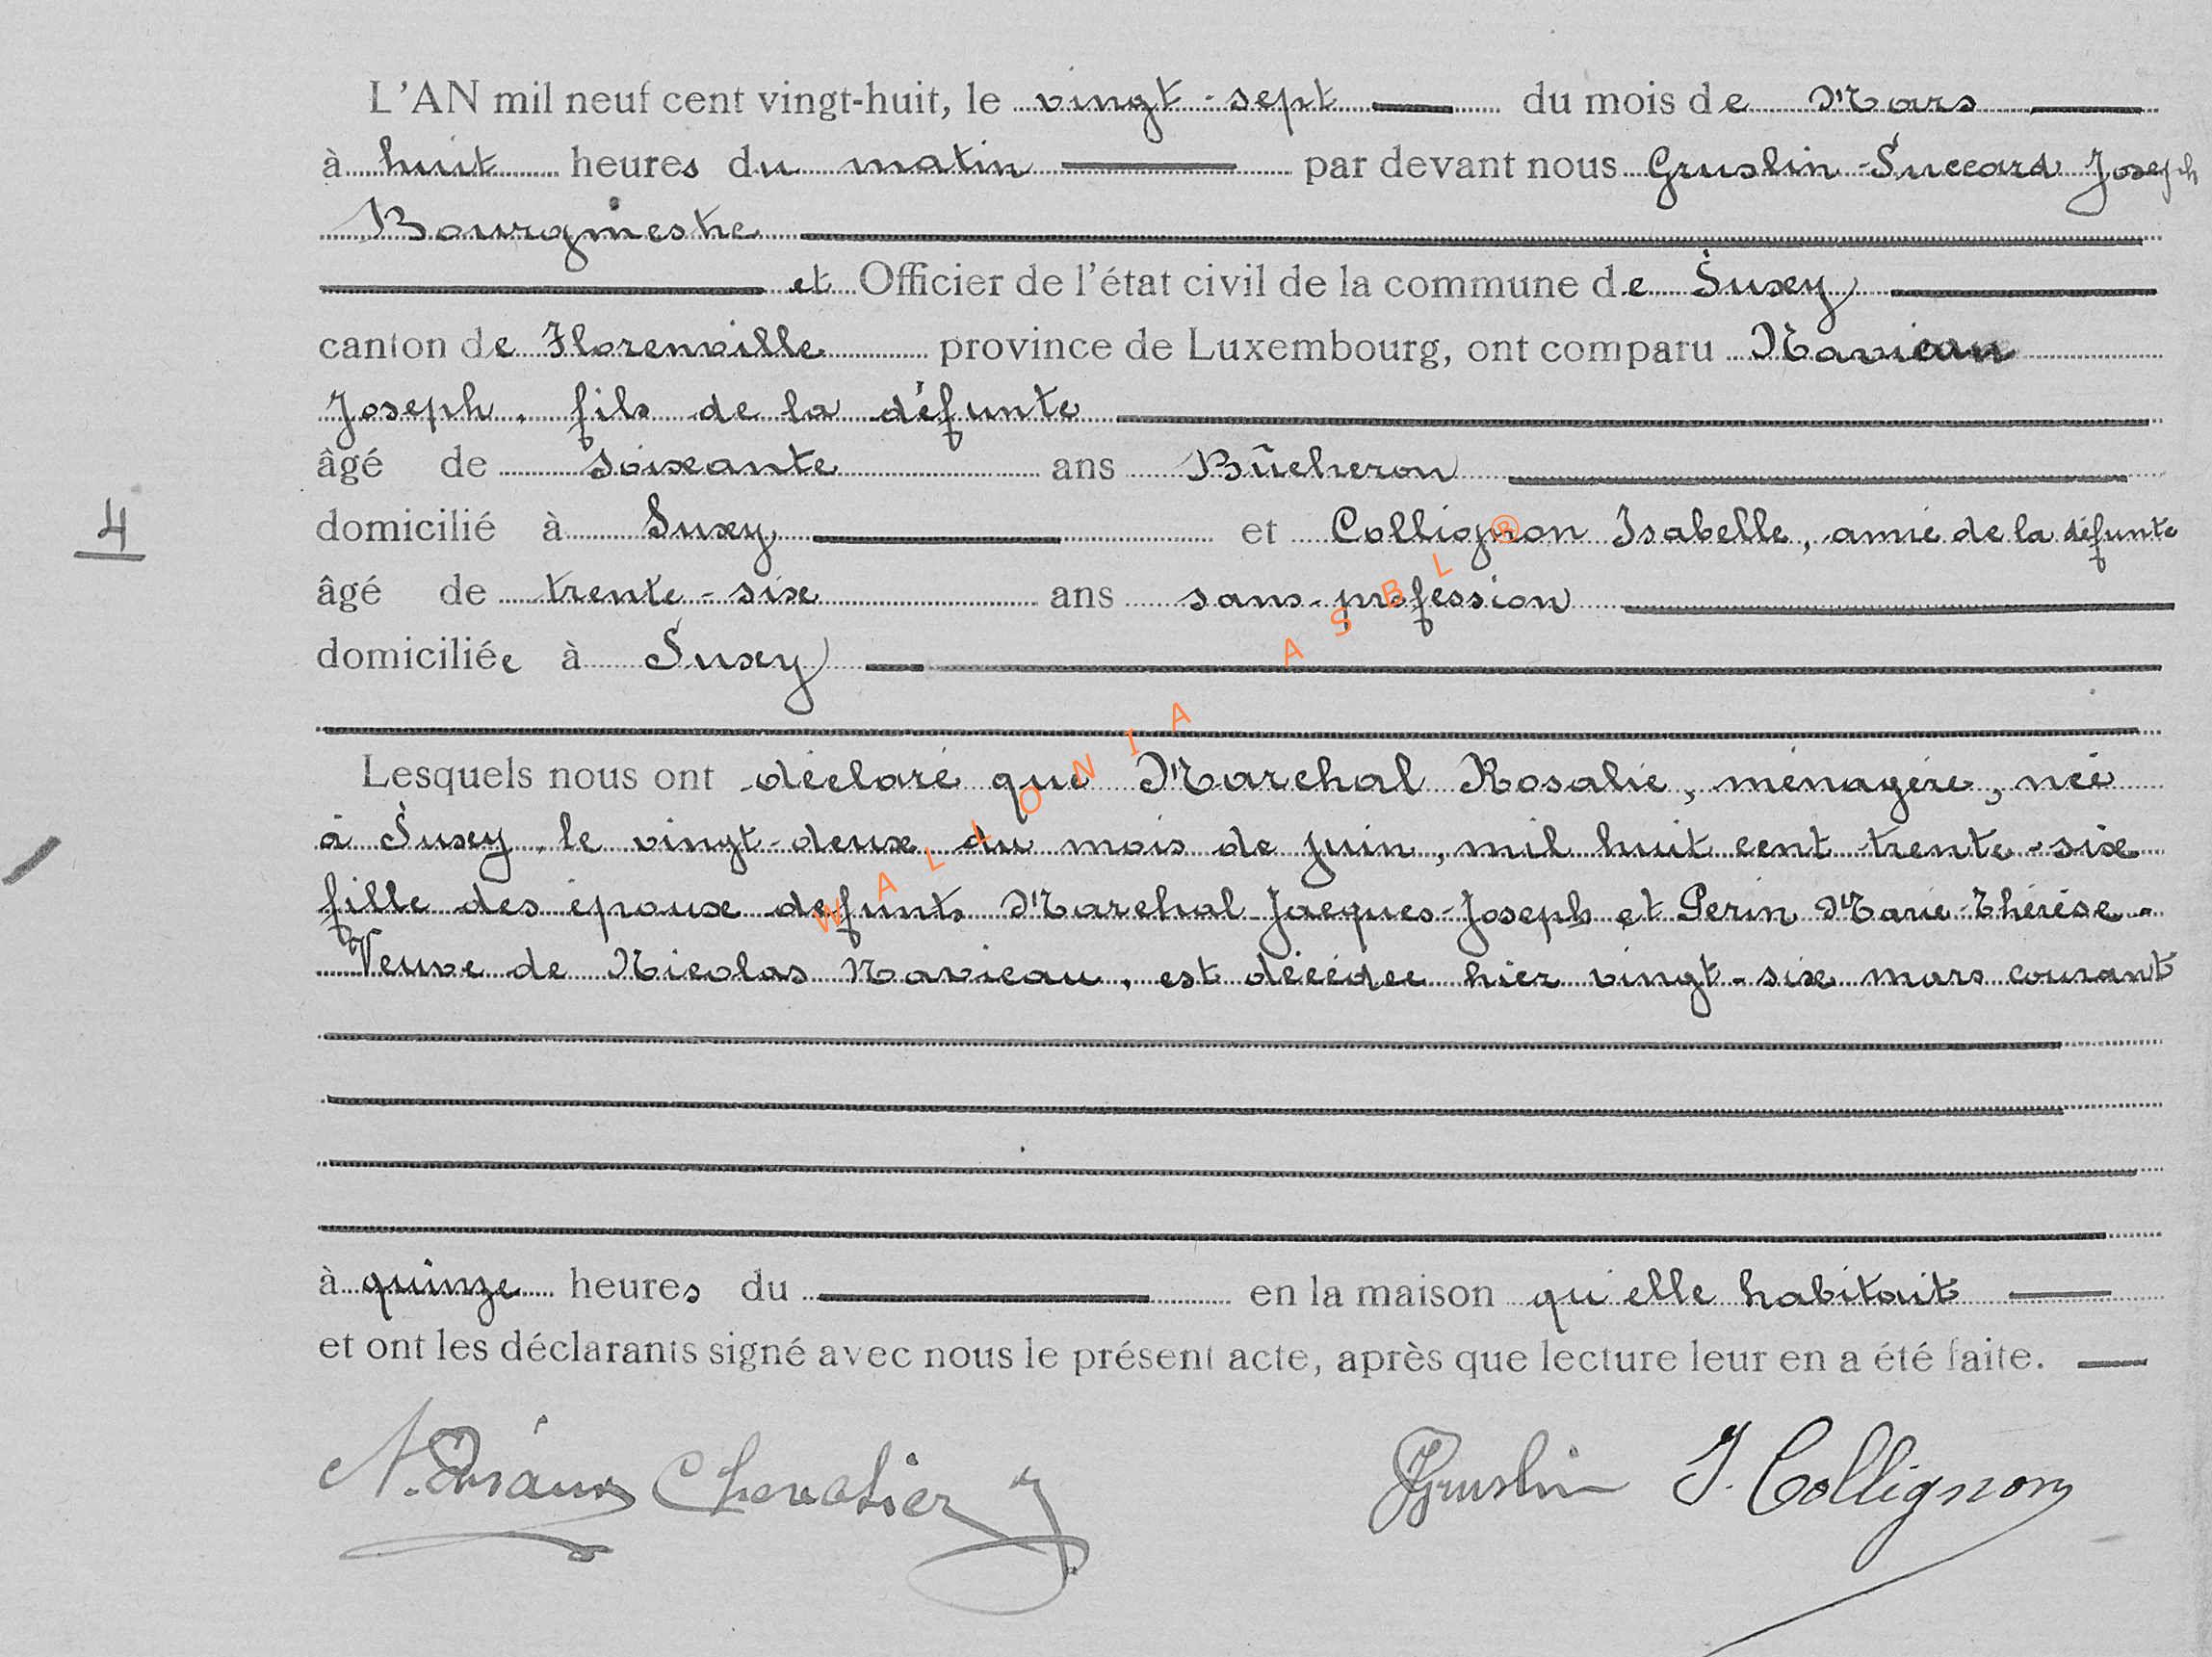 L'AN mil neuf cent vingt-huit, le vingt-sept du mois de Mars
à huit heures du matin par devant nous Gruslin-Succard Joseph
Bourgmestre
et Officier de l'état civil de la commune de Suxy
canton de Florenville province de Luxembourg, ont comparu Navieau
Joseph, fils de la défunte
âgé de soixante ans Bûcheron
4
domicilié à Suxy et Collignon Isabelle, amie de la défunte
âgé de trente-six ans sans profession
domiciliée à Suxy
Lesquels nous ont déclaré que Marchal Rosalie, ménagère, née
à Suxy, le vingt-deux du mois de juin, mil huit cent trente-six
fille des époux defunts Marchal Jacques-Joseph et Perin Marie-Thérèse.
Veuve de Nicolas Navieau, est décédée hier vingt-six mars courant
à quinze heures du en la maison qu'elle habitait
et ont les déclarants signé avec nous le présent acte, après que lecture leur en a été faite.
Chevalier Gruslin J. Collignon
WALLONIA ASBL®